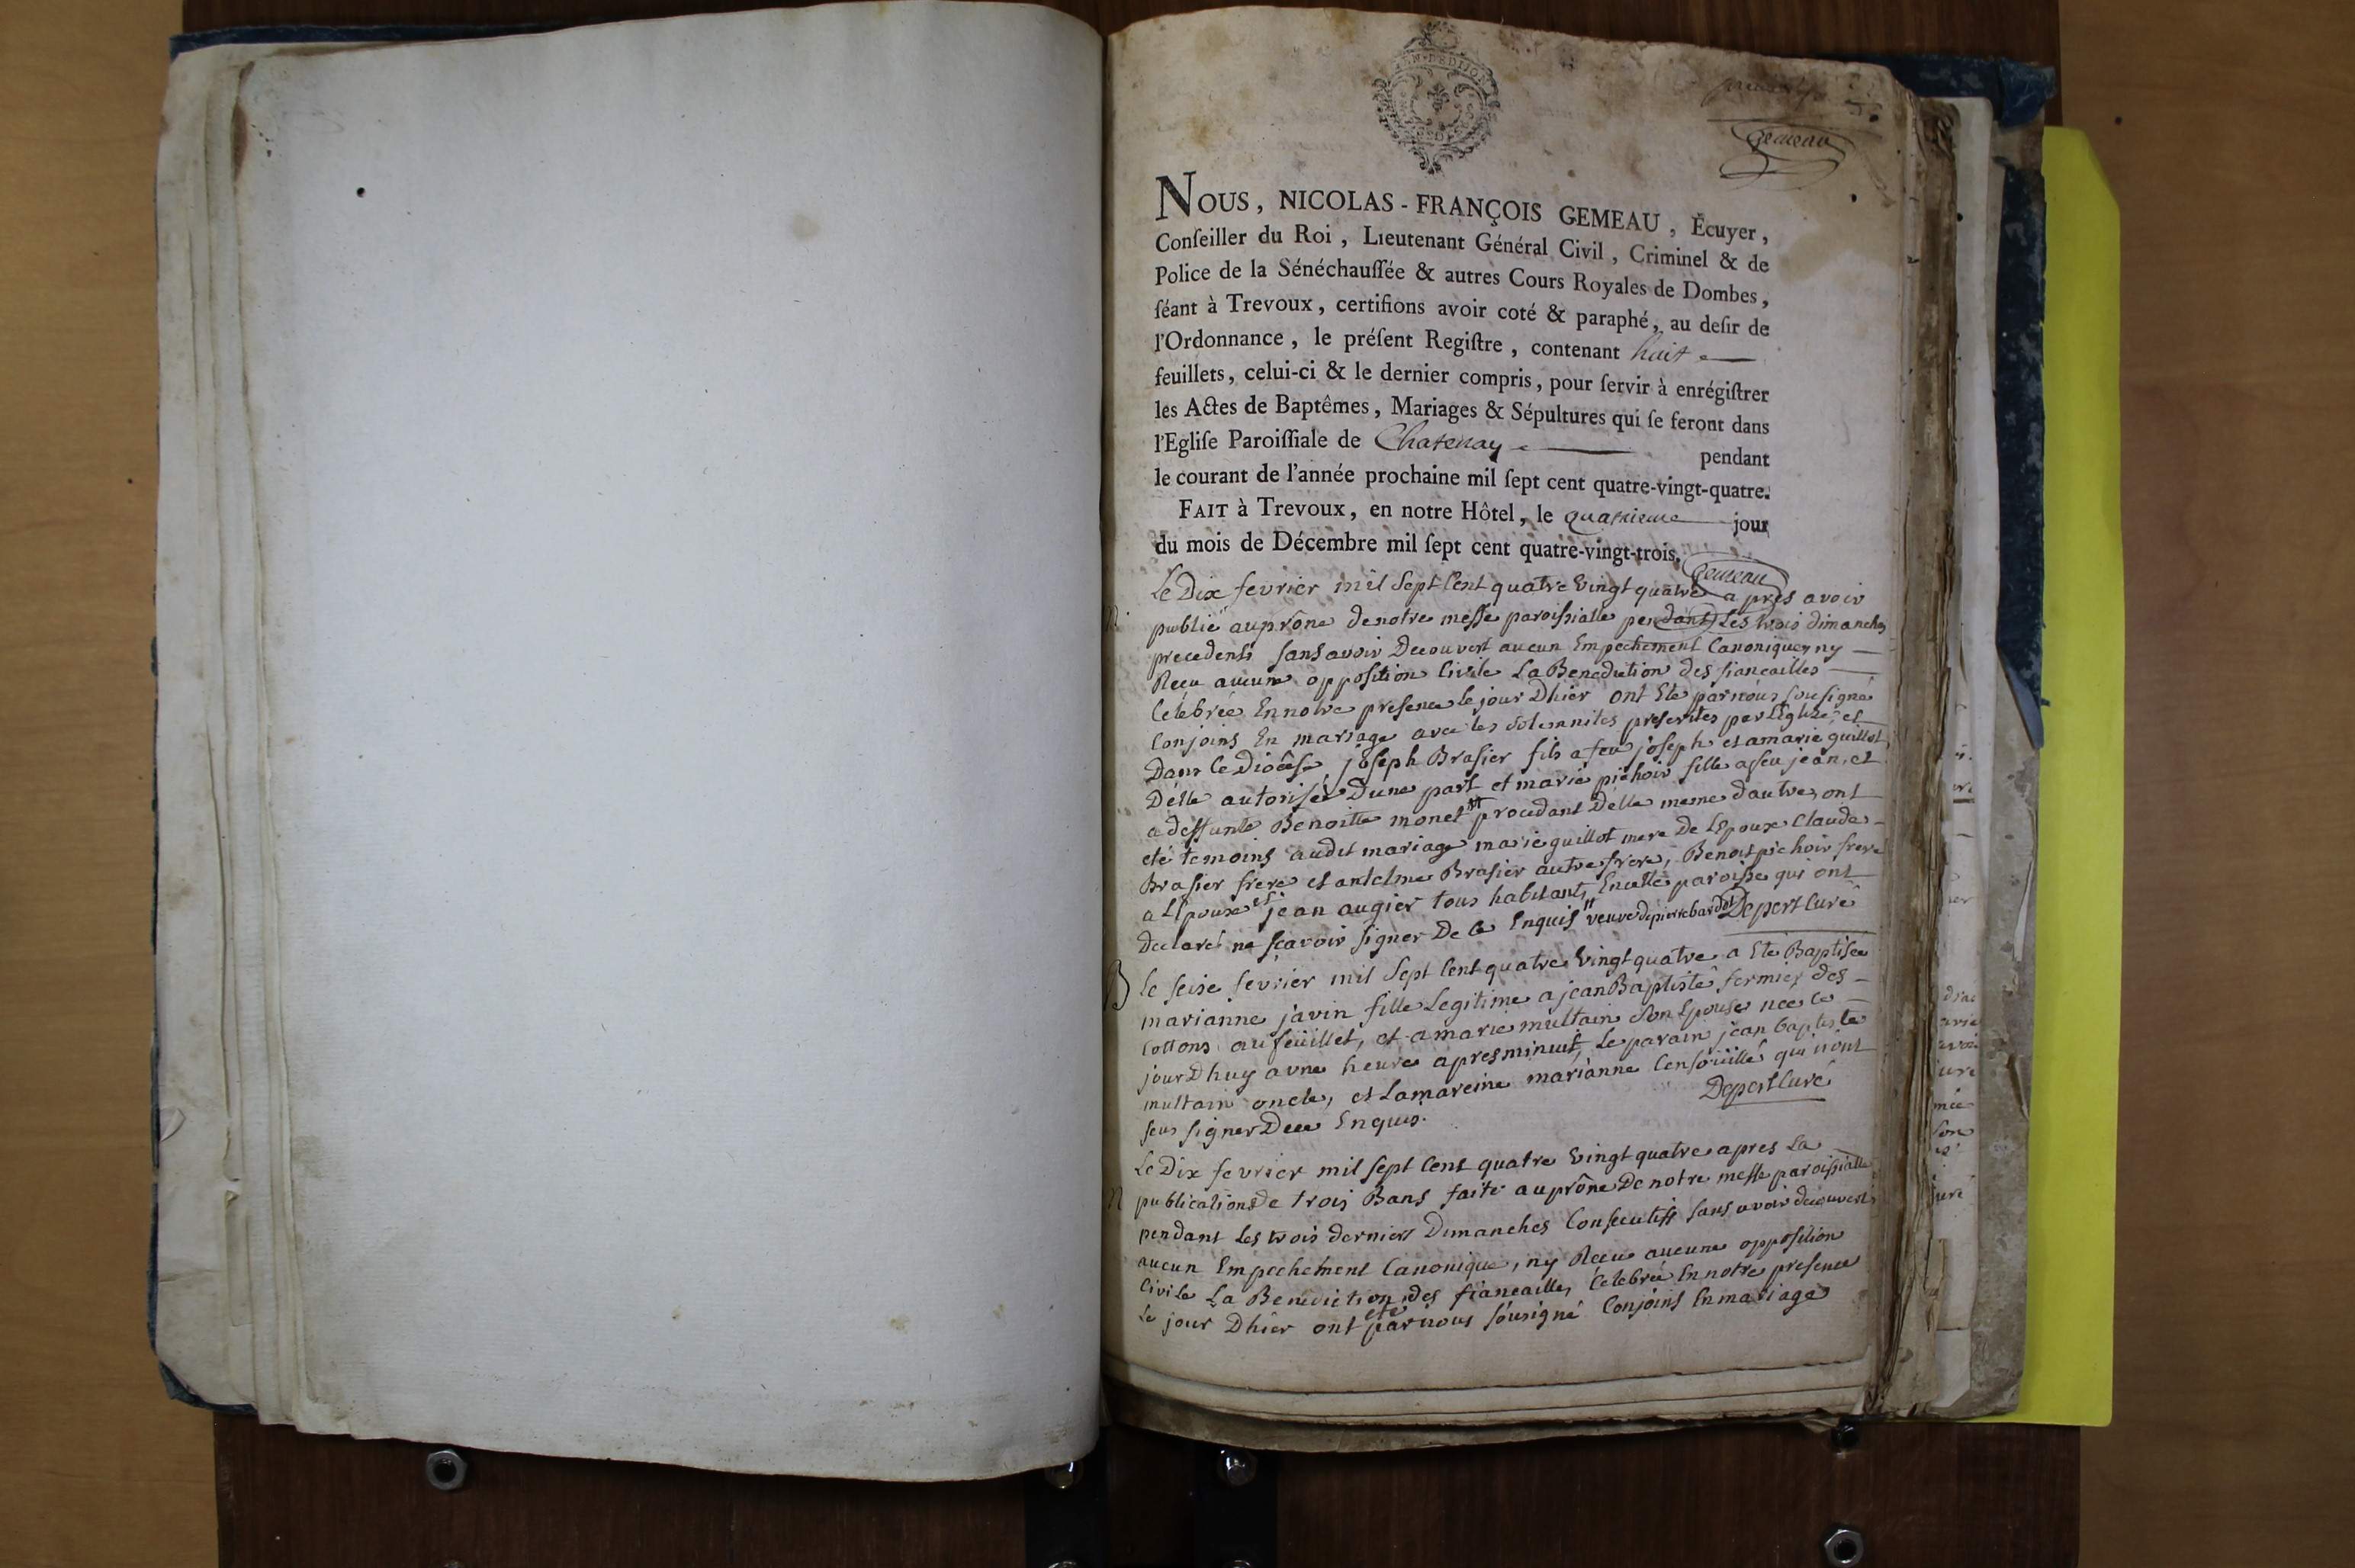 GEN. DE DIJON
Gemeau
NOUS, NICOLAS-FRANÇOIS GEMEAU, Écuyer,
Conſeiller du Roi, Lieutenant Général Civil, Criminel & de
Police de la Sénéchauſſée & autres Cours Royales de Dombes,
ſéant à Trevoux, certifions avoir coté & paraphé, au deſir de
l'Ordonnance, le préſent Regiſtre, contenant huit
feuillets, celui-ci & le dernier compris, pour ſervir à enrégiſtrer
les Actes de Baptêmes, Mariages & Sépultures qui ſe feront dans
l'Egliſe Paroiſſiale de Chatenay pendant
le courant de l'année prochaine mil ſept cent quatre-vingt-quatre.
FAIT à Trevoux, en notre Hôtel, le quatrieme jour
du mois de Décembre mil ſept cent quatre-vingt-trois.
Gemeau
Le Dix fevrier mil Sept Cent quatre Vingt quatre apres avoir
publié au prône de notre messe paroissialle pendant Les trois dimanches
precedents sans avoir Decouvert aucun Empechement Canonique, ny
Recu aucune opposition Civile La Benediction des fiancailles
Celebrée En notre presence le jour Dhier ont Ete par nous sousigné
Conjoins En mariage avec les Solemnites prescrites par L'Eglise, et
Dans ce Diocêse, joseph Brasier fils a feu joseph et a marie guillot
D'elle autorisér Dune part et marie pichoir fille a feu jean, et
a deffunte Benoitte monet # procedant Delle meme dautre, ont
eté temoins audit mariage marie guillot mere De Lepoux Claude
Brasier frere et antelme Brasier autre frere, Benoit pichoir frere
a L'Epouse et jean augier tous habitants En cette paroisse qui ont
declaré ne scavoir signer De ce Enquis # veuve de pierre bardet Depert Curé
B le seise fevrier mil Sept Cent quatre Vingt quatre a Eté Baptisée
marianne javin fille Legitime a jean Baptiste fermier des
Cottons au feüillet, et a marie multain Son Epouse nee ce
jourDhuy a une heure apres minuit, Le parain jean baptiste
multain oncle, et La mareine marianne qui nont
seus signer De ce Enquis. Depert Curé
Le Dix fevrier mil sept Cent quatre Vingt quatre apres La
publication de trois Bans faite au prône De notre messe paroissialle
pendant Les trois derniers Dimanches Consecutifs sans avoir decouvert
aucun Empechement Canonique, ny Recu aucune opposition
Civile La Benediction des fiancailles Celebrée En notre presence
Le jour Dhier ont eté par nous sousigné Conjoins En mariage